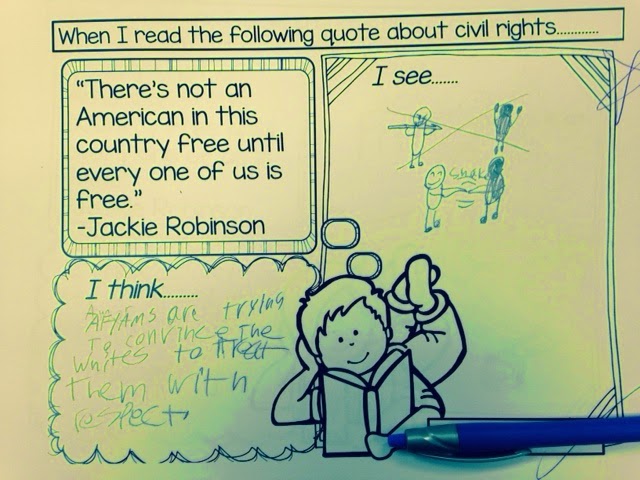 When I read the following quote about civil rights............
"There's not an
American in this
country free until
every one of us is
free."
-Jackie Robinson
I see.......
Shake
I think.........
AF/AMS are trying
To convince the
whites to treat
them with
respect